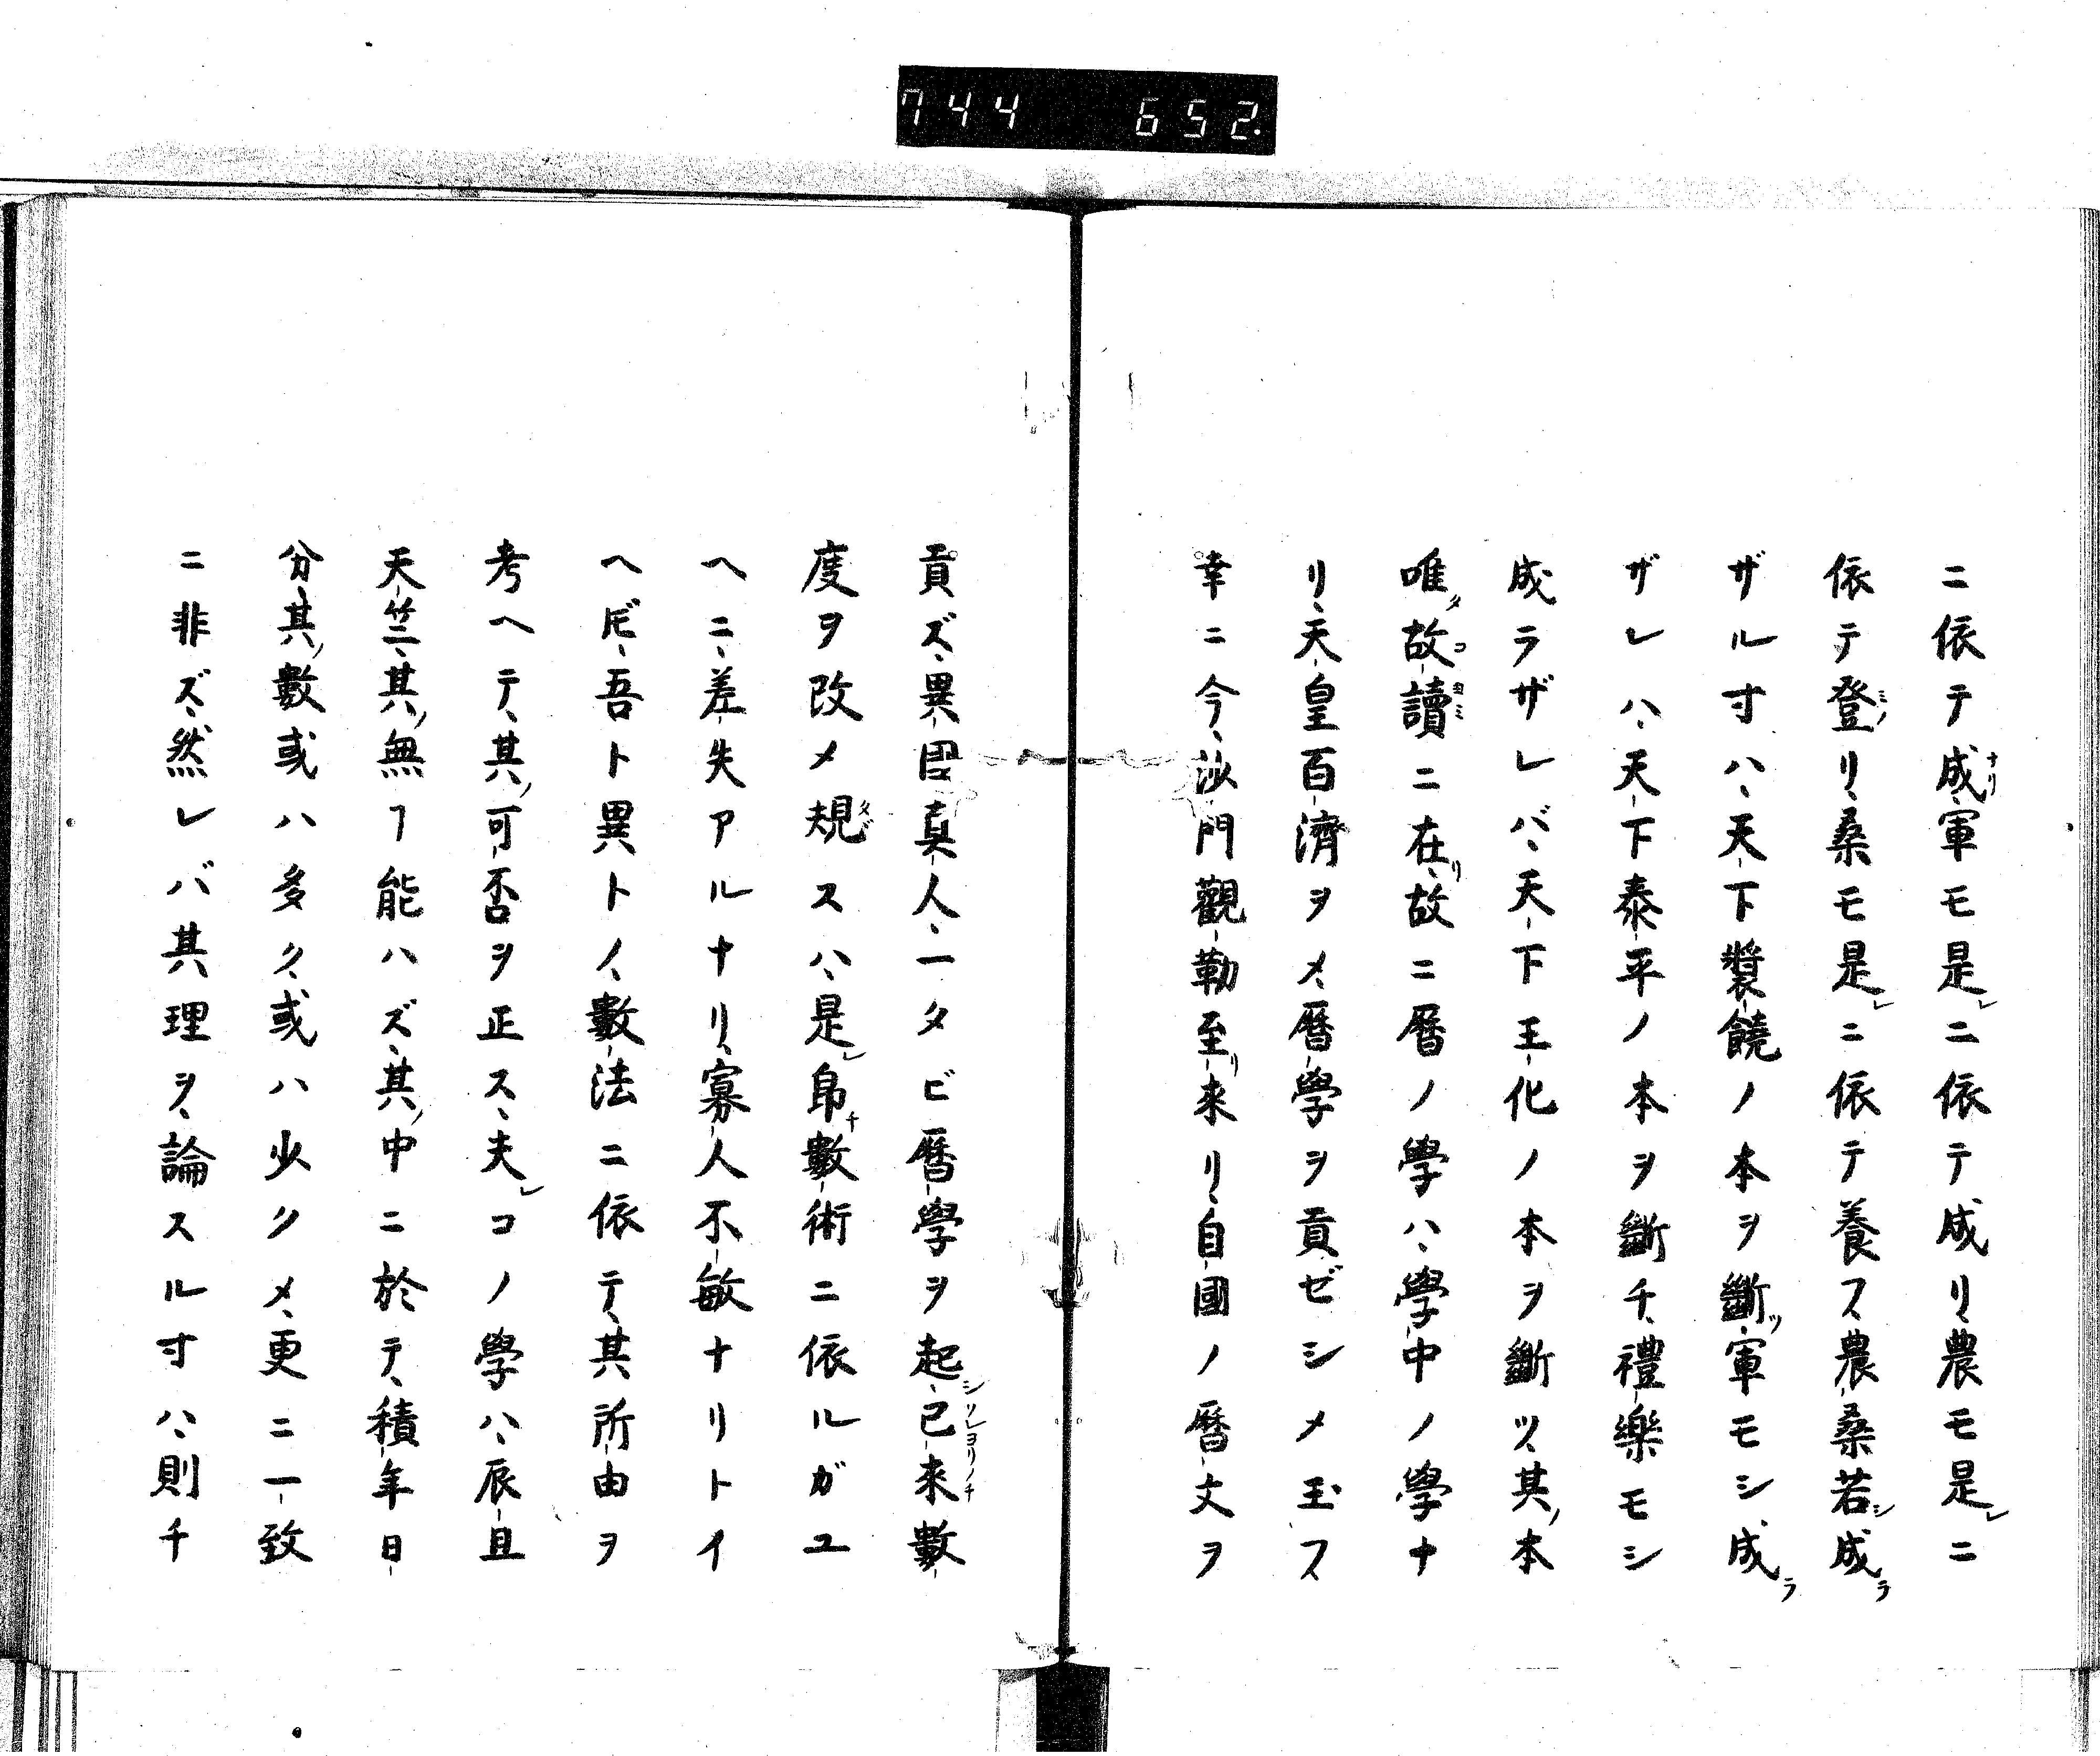 744 652.
ニ依テ成軍モ是レニ依テ成リ、農モ是レニ
依テ登リ、桑モ是レニ依テ養フ、農桑若シ成ラ
ザル寸ハ、天下襲饒ノ本ヲ斷ツ、軍モシ、成ラ
ザレハ、天下泰平ノ本ヲ斷チ、禮樂モシ
成ラザレバ、天下王化ノ本ヲ斷ツ、其ノ本
唯タ故讀ニ在リ、故ニ曆ノ學ハ、學中ノ學ナ
リ、天皇百濟ヲメ、曆學ヲ貢ゼシメ玉フ、
幸ニ今、沙門觀勒至リ來リ、自國ノ曆丈ヲ
貢ズ、異國真人、一タビ曆學ヲ起シ、已來數
度ヲ改メ規スハ、是レ帛數術ニ依ルガユ
ヘニ、差失アルナリ、寡人不敏ナリトイ
ヘ𪜈、吾ト異トノ、數法ニ依テ、其所由ヲ
考ヘテ、其ノ可否ヲ正ス、夫レコノ學ハ、辰且
天竺、其ノ無フ能ハズ、其ノ中ニ於テ、積年日
分、其ノ數或ハ多ク、或ハ少クメ、更ニ一致
ニ非ズ、然レバ其理ヲ、論スル寸ハ、則チ